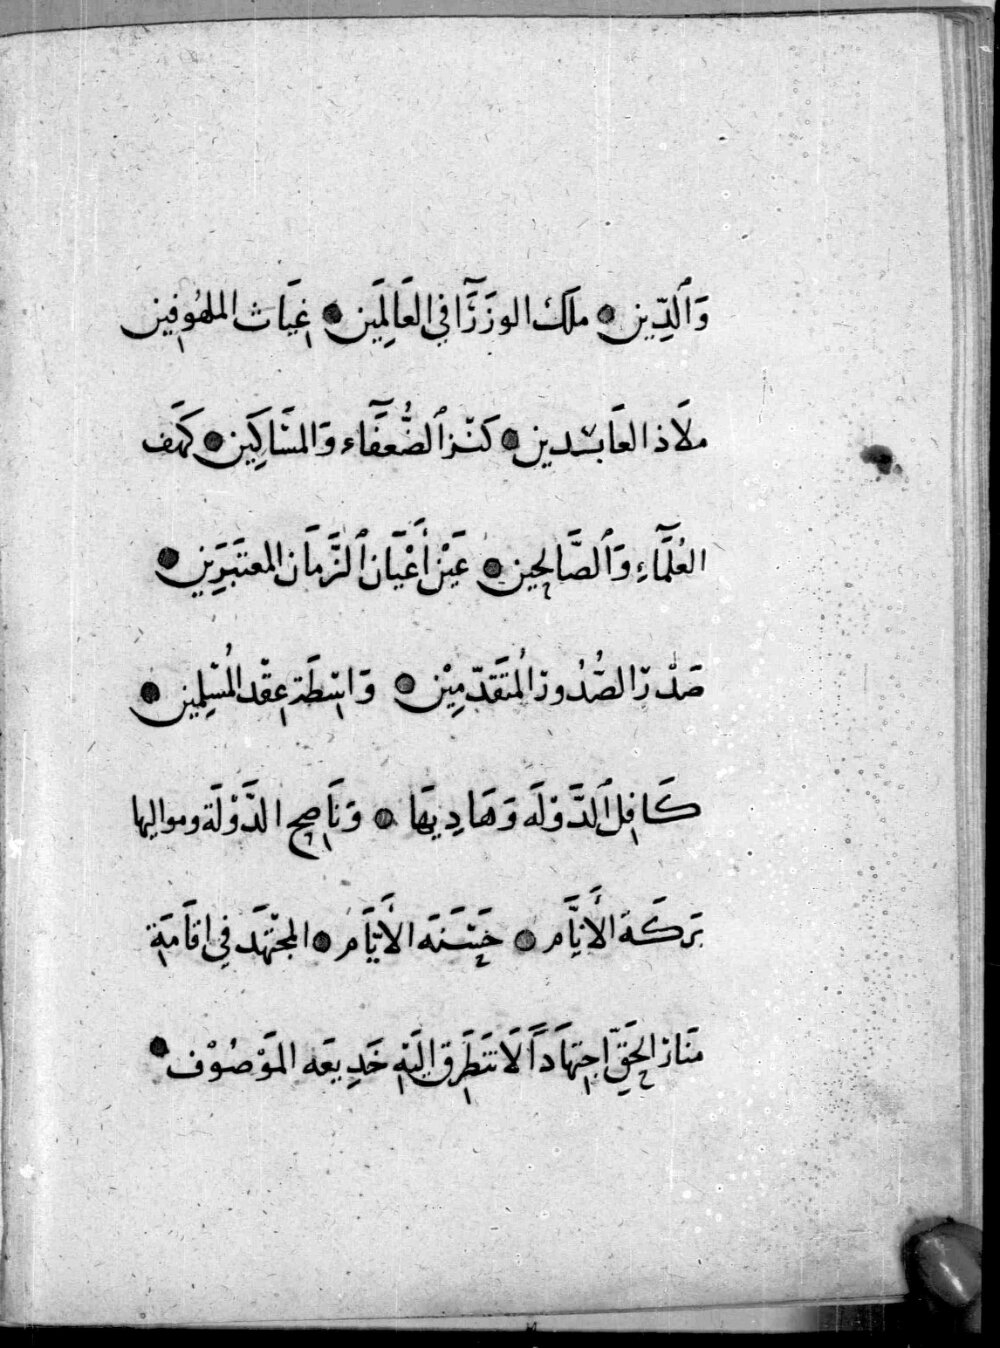 وَٱلدِّين ● ملَك الوزَرَآ في العَالِمَين ● غِيَاث الملهُوفِين
ملَاذ العَابدين ● كنْز ٱلضُّعفَآء وَالمسَاكِين ● كهَف
العُلمَآءِ وَٱلصَّالحِين ● عَيْن أَعْيَان ٱلزَّمَان المعتبَرِين ●
صَدْرّ الصُّدُور المُتقَدّمِيْن ● وَاسِطَة عِقْد المُسْلِمين ●
كَافِل ٱلدَّوْلَه وَهَادِيهَا ● وَنَاصِح الدَّوْلَة ومواليها
بَركَة الأَنَام ● حَسَنَه الأَيَّام ● المجْتهَد فِي اقَامَة
منَار الحَقِّ اجتِهَادَاً لَا تَتَطَرق إليَهِ خَدِيعَه المَوْصُوْف ●